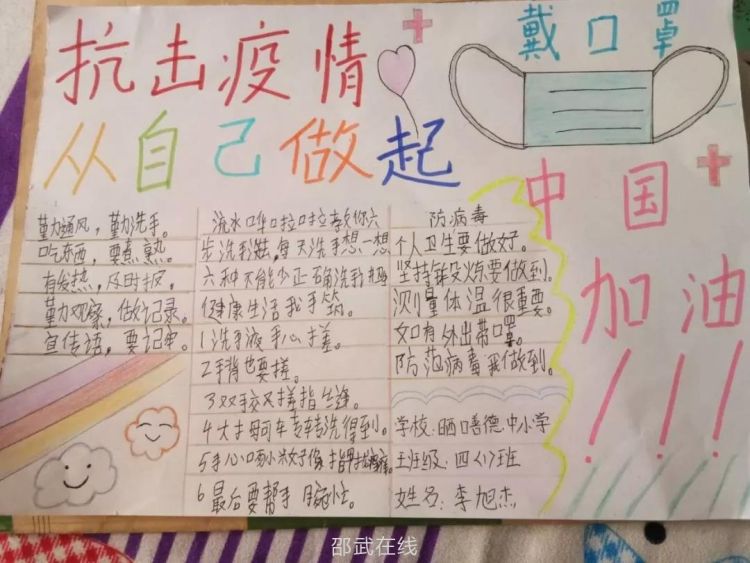 抗击疫情
从自己做起
戴口罩
中国
加油
!!!
勤通风，勤洗手。
吃东西，要煮熟。
有发热，及时报。
勤观察，做记录。
宣传语，要记牢。
流水哗啦啦教你六
步洗手，每天洗手想一想
六种不能少正确洗手
健康生活我手筑。
1洗手液手心搓。
2手背也要搓。
3双手交叉搓指缝。
4大拇哥车专车专洗得到。
5手心
6最后要帮手腕忙。
防病毒
个人卫生要做好。
坚持锻炼要做到。
测量体温很重要。
如有外出带口罩。
防范病毒我做到。
学校：晒口善德中小学
班级：四〈1〉班
姓名：李旭杰
邵武在线